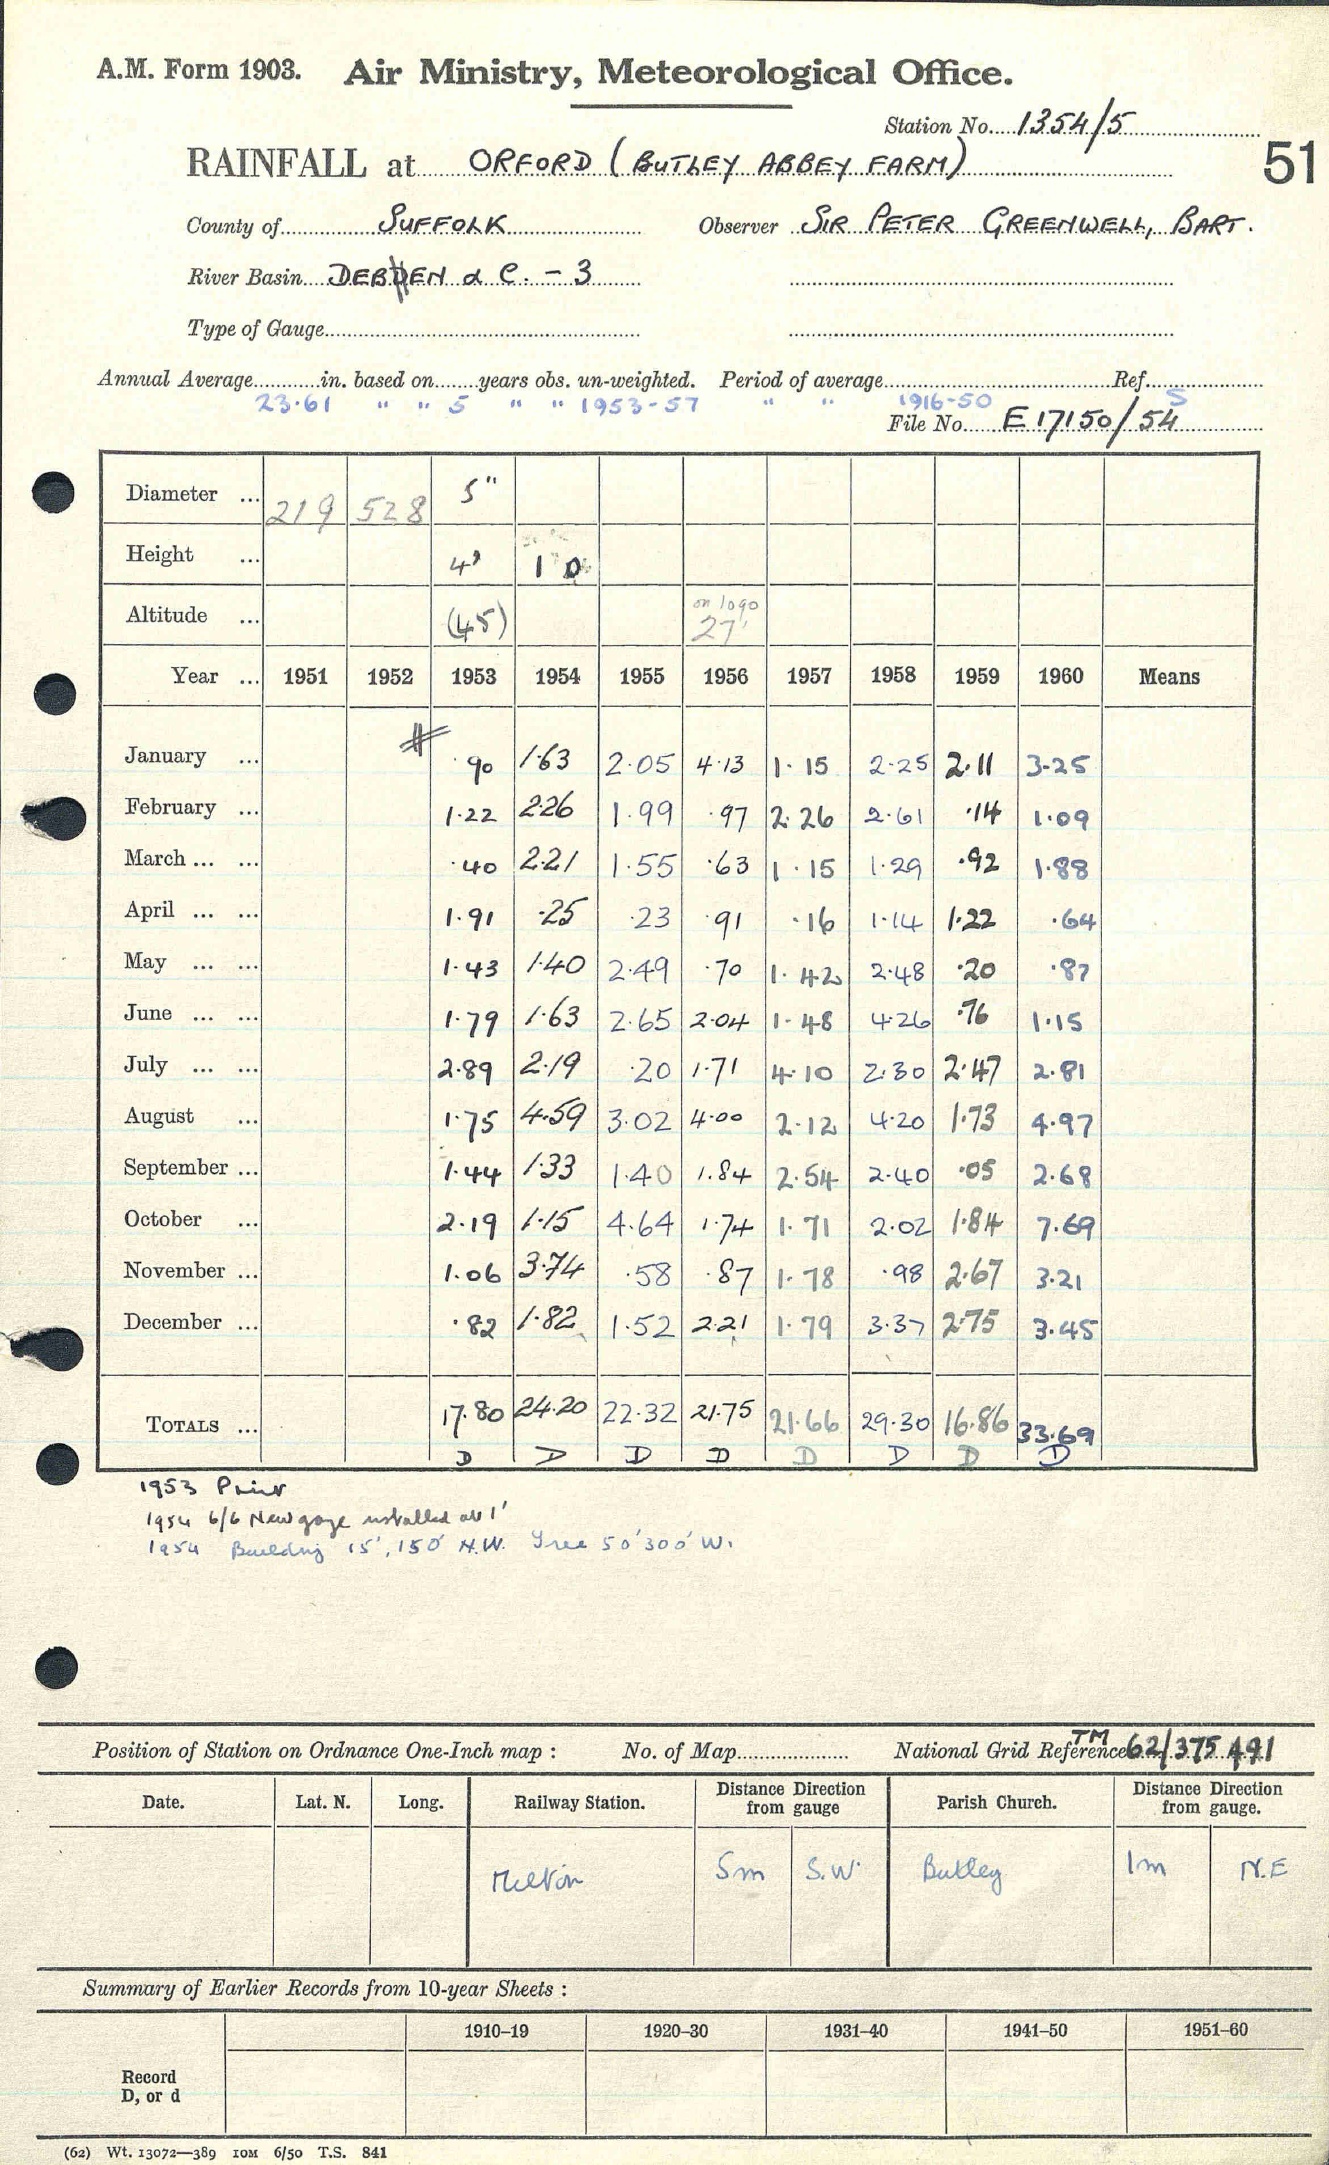 A.M. Form 1903. Air Ministry, Meteorological Office.
Station No. 1354/5
51
RAINFALL at ORFORD (BUTLEY ABBEY FARM)
County of SUFFOLK Observer SIR PETER GREENWELL, BART.
River Basin DEBEN & C. - 3
Type of Gauge
Annual Average in. based on years obs. un-weighted. Period of average Ref.
23.61 " " 5 " " 1953-57 " " 1916-50 S
File No. E 17150/54
Diameter ... 219 528 5"
Height ... 4' 1 0
Altitude ... (45) on 1090 27'
Year ... 1951 1952 1953 1954 1955 1956 1957 1958 1959 1960 Means
January ... .90 1.63 2.05 4.13 1.15 2.25 2.11 3.25
February ... 1.22 2.26 1.99 .97 2.26 2.61 .14 1.09
March ... ... .40 2.21 1.55 .63 1.15 1.29 .92 1.88
April ... ... 1.91 .25 .23 .91 .16 1.14 1.22 .64
May ... ... 1.43 1.40 2.49 .70 1.42 2.48 .20 .87
June ... ... 1.79 1.63 2.65 2.04 1.48 4.26 .76 1.15
July ... ... 2.89 2.19 .20 1.71 4.10 2.30 2.47 2.81
August ... 1.75 4.59 3.02 4.00 2.12 4.20 1.73 4.97
September ... 1.44 1.33 1.40 1.84 2.54 2.40 .05 2.68
October ... 2.19 1.15 4.64 1.74 1.71 2.02 1.84 7.69
November ... 1.06 3.74 .58 .87 1.78 .98 2.67 3.21
December ... .82 1.82 1.52 2.21 1.79 3.37 2.75 3.45
TOTALS ... 17.80 24.20 22.32 21.75 21.66 29.30 16.86 33.69
D D D D D D D D
1953 Prior
1954 6/6 New gage installed at 1'
1954 Building 15', 150' N.W. Tree 50' 300' W.
Position of Station on Ordnance One-Inch map : No. of Map National Grid Reference TM 62/375 491
Date. Lat. N. Long. Railway Station. Distance from gauge Direction Parish Church. Distance from gauge. Direction
Melton 5m S.W. Butley 1m N.E
Summary of Earlier Records from 10-year Sheets :
1910–19 1920–30 1931–40 1941–50 1951–60
Record
D, or d
(62) Wt. 13072—389 10M 6/50 T.S. 841